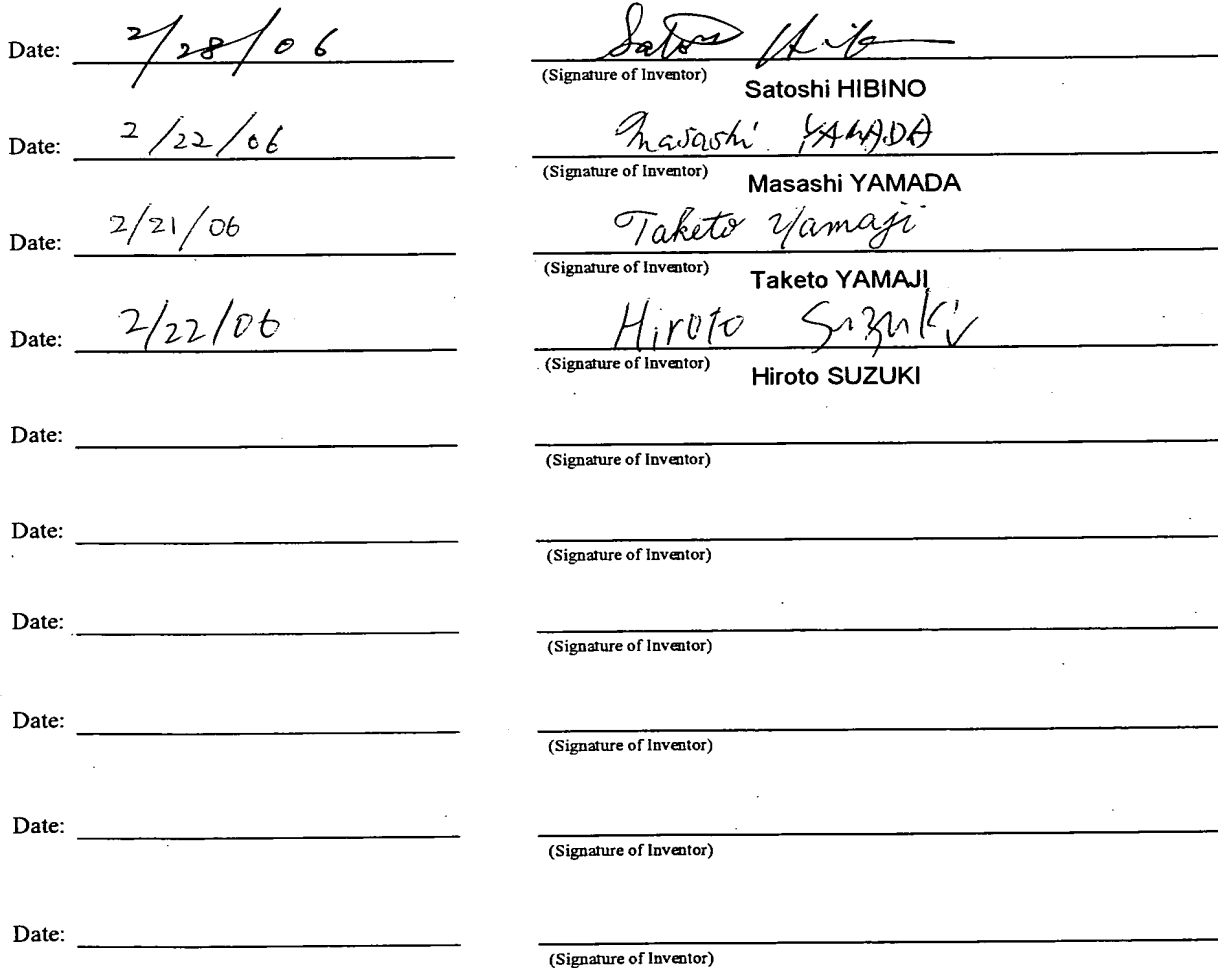 Date: 2/28/06 Satoshi Hibino
(Signature of Inventor)
Satoshi HIBINO
Date: 2/22/06 Masashi YAMADA
(Signature of Inventor)
Masashi YAMADA
Date: 2/21/06 Taketo Yamaji
(Signature of Inventor)
Taketo YAMAJI
Date: 2/22/06 Hiroto Suzuki
(Signature of Inventor)
Hiroto SUZUKI
Date:
(Signature of Inventor)
Date:
(Signature of Inventor)
Date:
(Signature of Inventor)
Date:
(Signature of Inventor)
Date:
(Signature of Inventor)
Date:
(Signature of Inventor)